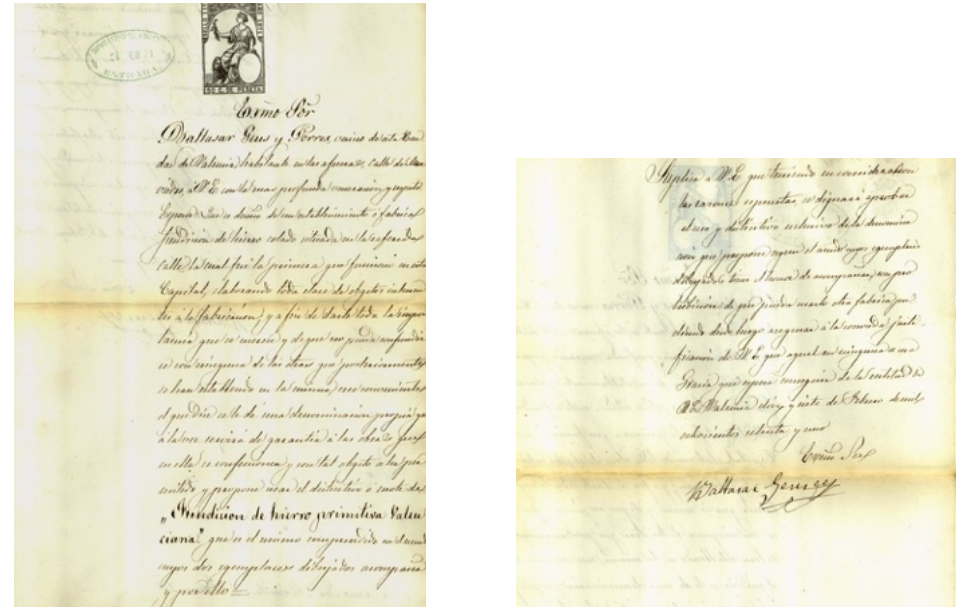 ENTRADA
50 C. DE PESETA
Excmo Sor
Baltasar Geus y Porres, vecino de esta Ciu
dad de Valencia, habitante en las afueras, Calle de
a V.E. con la mas profunda veneracion y respeto
Espone: Que es dueño de un establecimiento o fabrica
fundicion de hierro colado situada en la referida
calle, la cual fué la primera que funcionó en esta
Capital, elaborando toda clase de objetos
á la fabricacion, y a fin de darle toda la impor
tancia que se merece y de que no pueda confundir
se con ninguna de las otras que posteriormente
se han establecido en la misma, cree conveniente
el que dice se le de una denominacion propia que
á la vez servirá de garantia á las obras que
en ella se confeccionen, y con tal objeto
y propone usar el distintivo ó mote de
"Fundicion de hierro primitiva Valen
ciana" que es el mismo comprendido en el
cuyos dos egemplares dibujados acompaña
y por ello
Suplica a V.E. que teniendo en consideracion
las razones espuestas, se dignará aprobar
el uso y distintivo esclusivo de la denomina
cion que propone segun el cuyos egemplares
dibujados tiene el honor de acompañar, con pro
hibicion de que pueda usarlo otra fabrica, pu
diendo desde luego asegurar á la conocida
de V.E. que
Gracia que espera conseguir de la rectitud de
V.E. Valencia diez y siete de Febrero de mil
ochocientos setenta y uno
Excmo Sor
Baltasar Geus